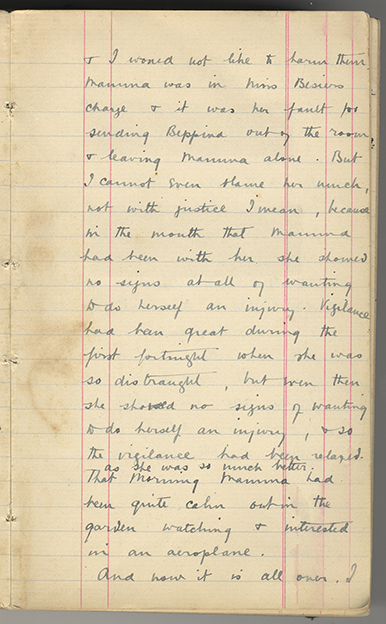 & I would not like to harm them.
Mamma was in Miss Besiers
charge & it was her fault for
sending Beppina out of the room
& leaving Mamma alone. But
I cannot even blame her much,
not with justice I mean, because
in the month that Mamma
had been with her she showed
no signs at all of wanting
to do herself an injury. Vigilance
had been great during the
first fortnight when she was
so distraught, but even then
she showed no signs of wanting
to do herself an injury, & so
the vigilance had been relaxed.
as she was so much better.
That Morning Mamma had
been quite calm out in the
garden watching & interested
in an aeroplane.
And now it is all over. I